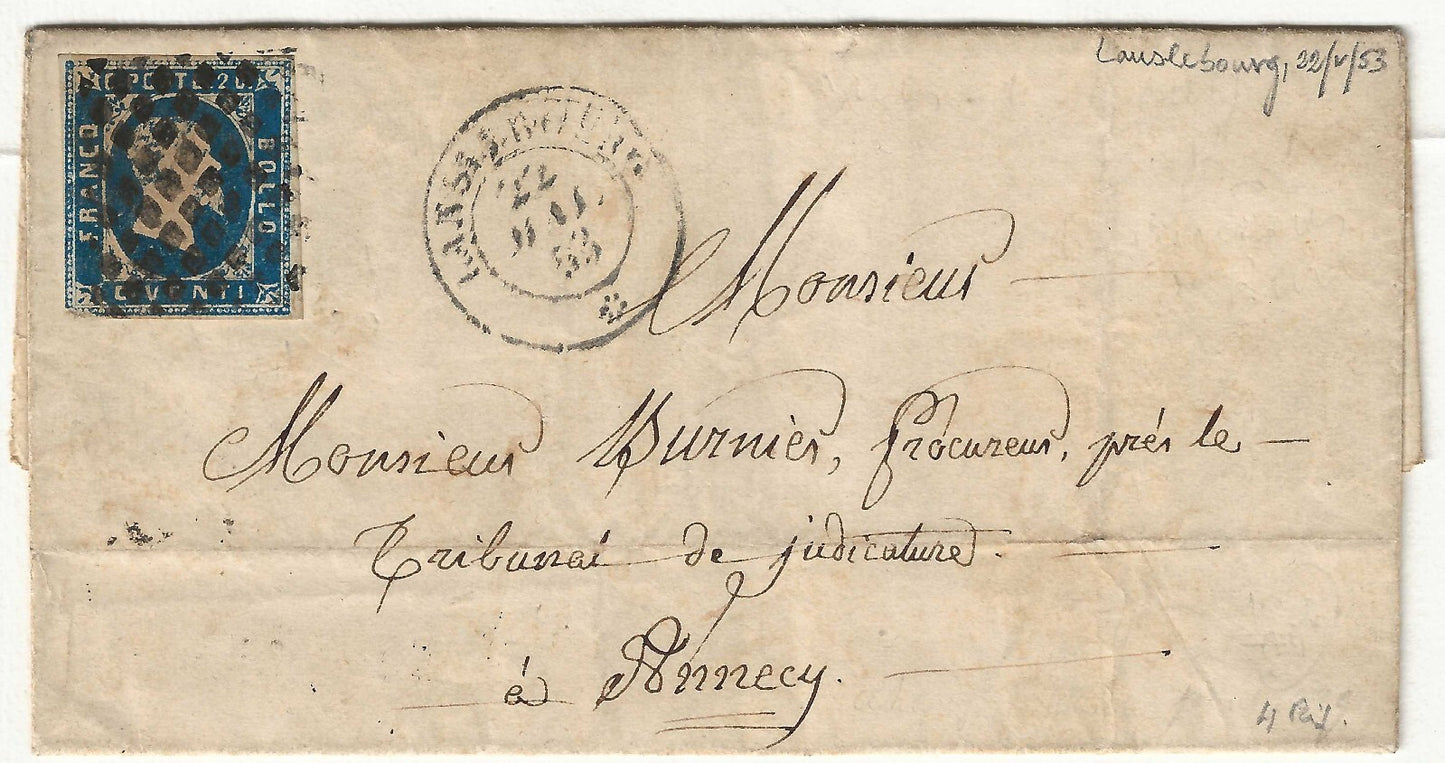 C. POSTE. 20.
FRANCO
BOLLO
C. VENTI
LANSLEBOURG
22
MAI
53
Lanslebourg, 22/V/53
Monsieur
Monsieur Burnier, Procureur, près le
Tribunal de judicature.
à Annecy.
4